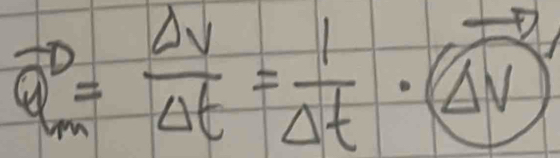 a⃗m = Δv/Δt = 1/Δt · Δv⃗